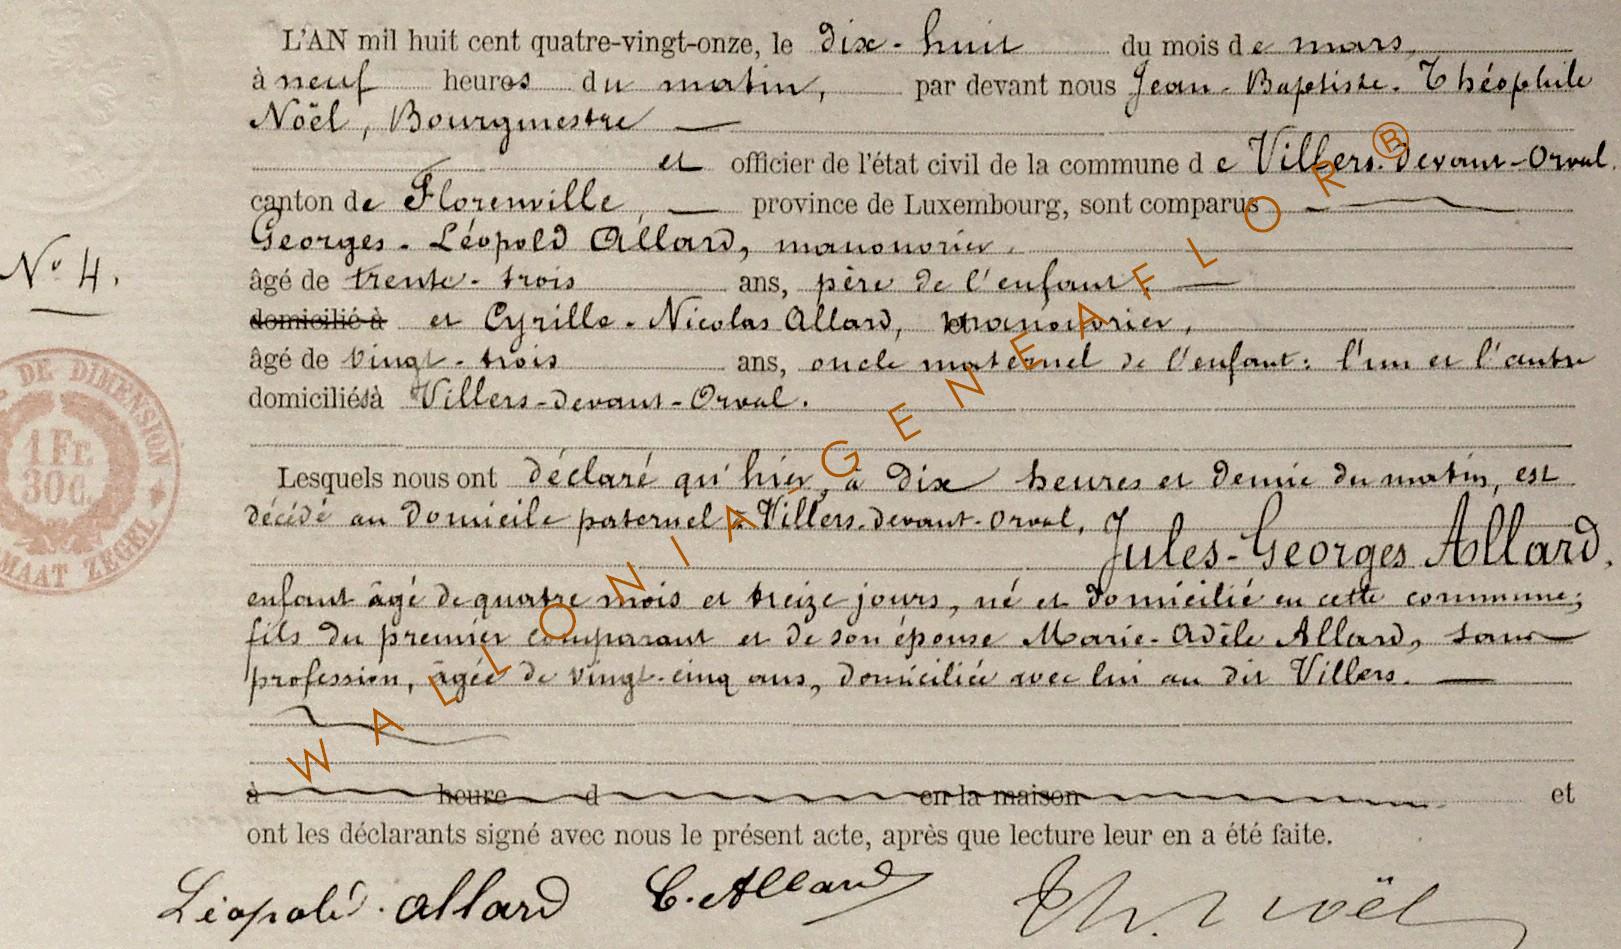 L'AN mil huit cent quatre-vingt-onze, le dix-huit du mois de mars,
à neuf heures du matin, par devant nous Jean-Baptiste-Théophile
Noël, Bourgmestre
et officier de l'état civil de la commune de Villers-devant-Orval,
canton de Florenville, province de Luxembourg, sont comparus
Georges-Léopold Allard, manouvrier,
N° 4.
âgé de trente-trois ans, père de l'enfant,
domicilié à et Cyrille-Nicolas Allard, manouvrier,
âgé de vingt-trois ans, oncle maternel de l'enfant: l'un et l'autre
domiciliés à Villers-devant-Orval.
Lesquels nous ont déclaré qu'hier, à dix heures et demie du matin, est
décédé au domicile paternel à Villers-devant-Orval,
Jules-Georges Allard,
enfant âgé de quatre mois et treize jours, né et domicilié en cette commune;
fils du premier comparant et de son épouse Marie-Adèle Allard, sans
profession, âgée de vingt-cinq ans, domiciliée avec lui au dit Villers.
à heure d en la maison et
ont les déclarants signé avec nous le présent acte, après que lecture leur en a été faite.
Léopold Allard C. Allard Th. Noël
DE DIMENSION
1 Fr.
30 C.
MAAT ZEGEL
WALLONIA-GENEAFLOR®